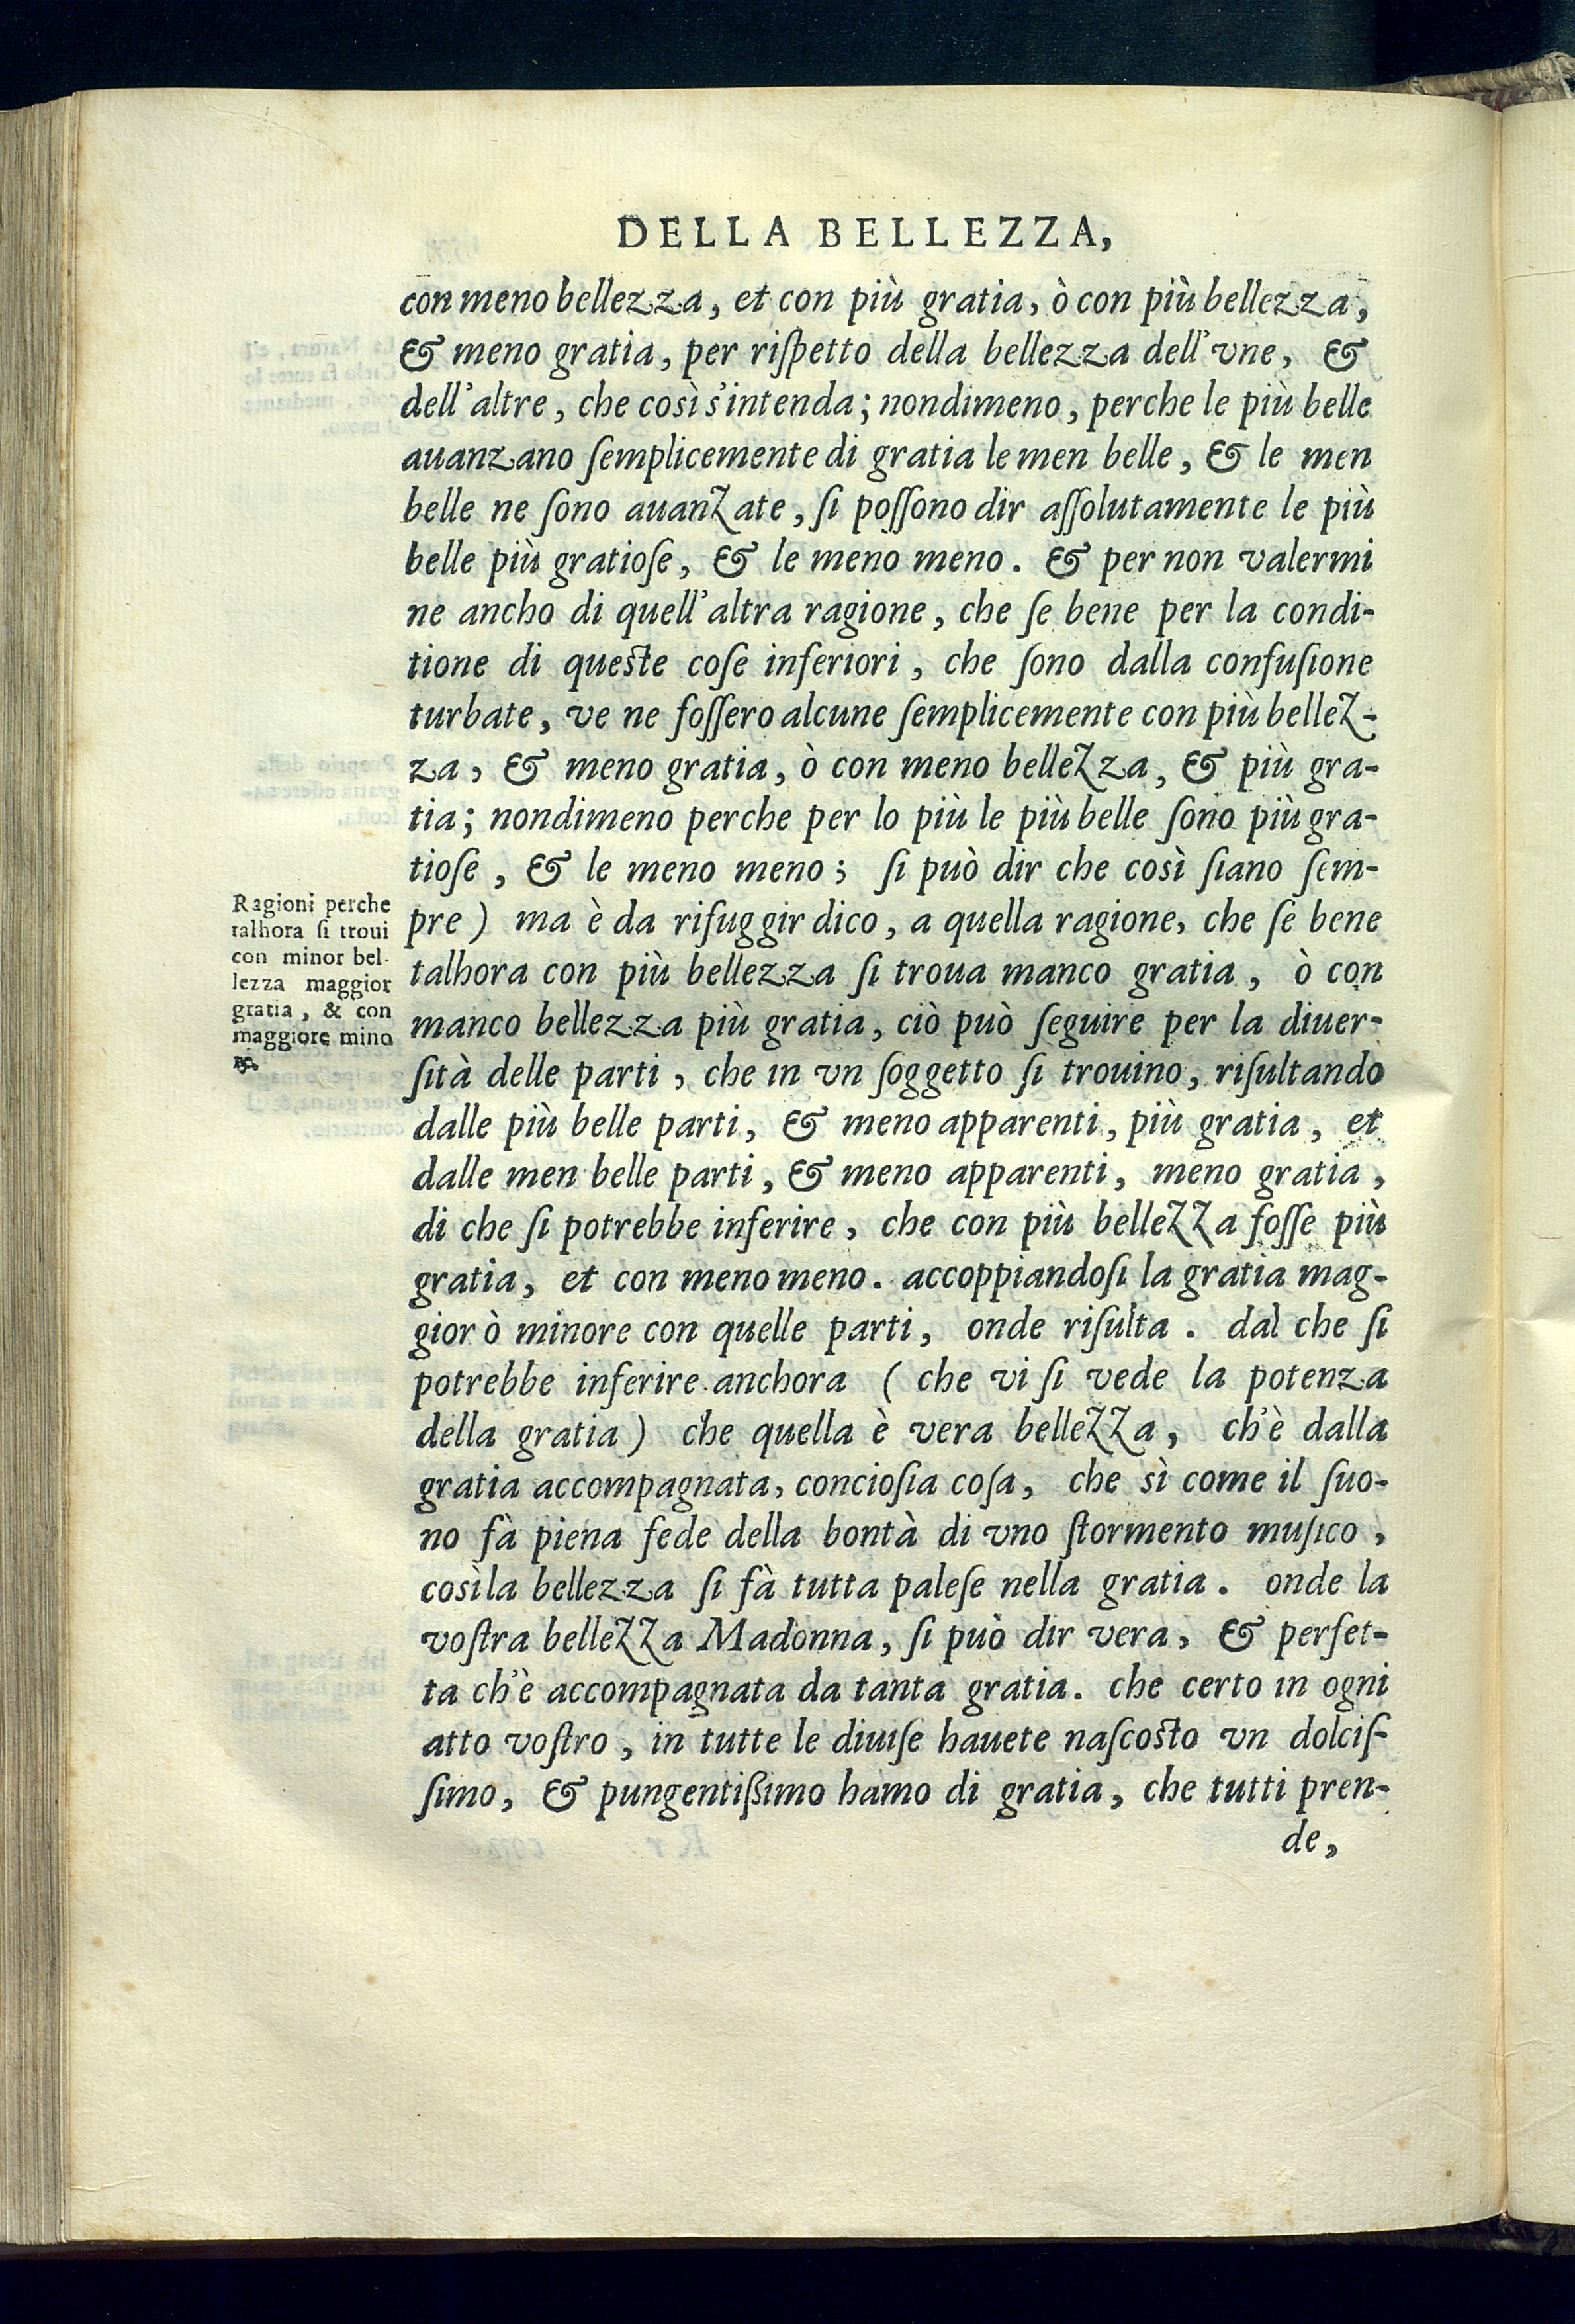 DELLA BELLEZZA,
con meno bellezza, et con più gratia, ò con più bellezza,
& meno gratia, per riſpetto della bellezza dell'vne, &
dell'altre, che così s'intenda; nondimeno, perche le più belle
auanzano ſemplicemente di gratia le men belle, & le men
belle ne ſono auanzate, ſi poſſono dir aſſolutamente le più
belle più gratioſe, & le meno meno. & per non valermi
ne ancho di quell'altra ragione, che ſe bene per la condi-
tione di queſte coſe inferiori, che ſono dalla confuſione
turbate, ve ne foſſero alcune ſemplicemente con più bellez-
za, & meno gratia, ò con meno bellezza, & più gra-
tia; nondimeno perche per lo più le più belle ſono più gra-
tioſe, & le meno meno; ſi può dir che così ſiano ſem-
pre) ma è da rifuggir dico, a quella ragione, che ſe bene
talhora con più bellezza ſi troua manco gratia, ò con
manco bellezza più gratia, ciò può ſeguire per la diuer-
ſità delle parti, che in vn ſoggetto ſi trouino, riſultando
dalle più belle parti, & meno apparenti, più gratia, et
dalle men belle parti, & meno apparenti, meno gratia,
di che ſi potrebbe inferire, che con più bellezza foſſe più
gratia, et con meno meno. accoppiandoſi la gratia mag-
gior ò minore con quelle parti, onde riſulta. dal che ſi
potrebbe inferire anchora ( che vi ſi vede la potenza
della gratia) che quella è vera bellezza, ch'è dalla
gratia accompagnata, concioſia coſa, che sì come il ſuo-
no fà piena fede della bontà di vno ſtormento muſico,
così la bellezza ſi fà tutta paleſe nella gratia. onde la
voſtra bellezza Madonna, ſi può dir vera, & perfet-
ta ch'è accompagnata da tanta gratia. che certo in ogni
atto voſtro, in tutte le diuiſe hauete naſcoſto vn dolciſ-
ſimo, & pungentißimo hamo di gratia, che tutti pren-
de,
Ragioni perche
talhora ſi troui
con minor bel-
lezza maggior
gratia, & con
maggiore mino
re.